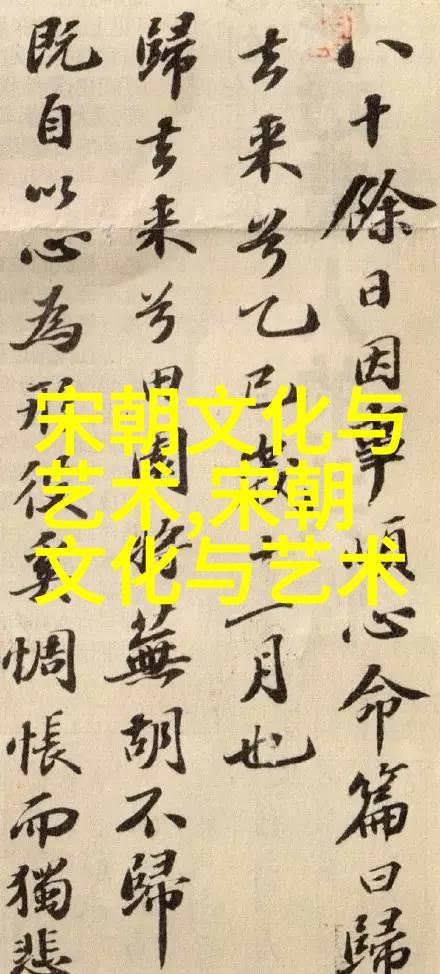 八十餘日因事順心命篇曰歸
去来兮乙巳歲十一月也
歸去来兮田園将蕪胡不歸
既自以心為形役奚惆悵而獨悲
宋朝文化与
艺术,宋朝
文化与艺术